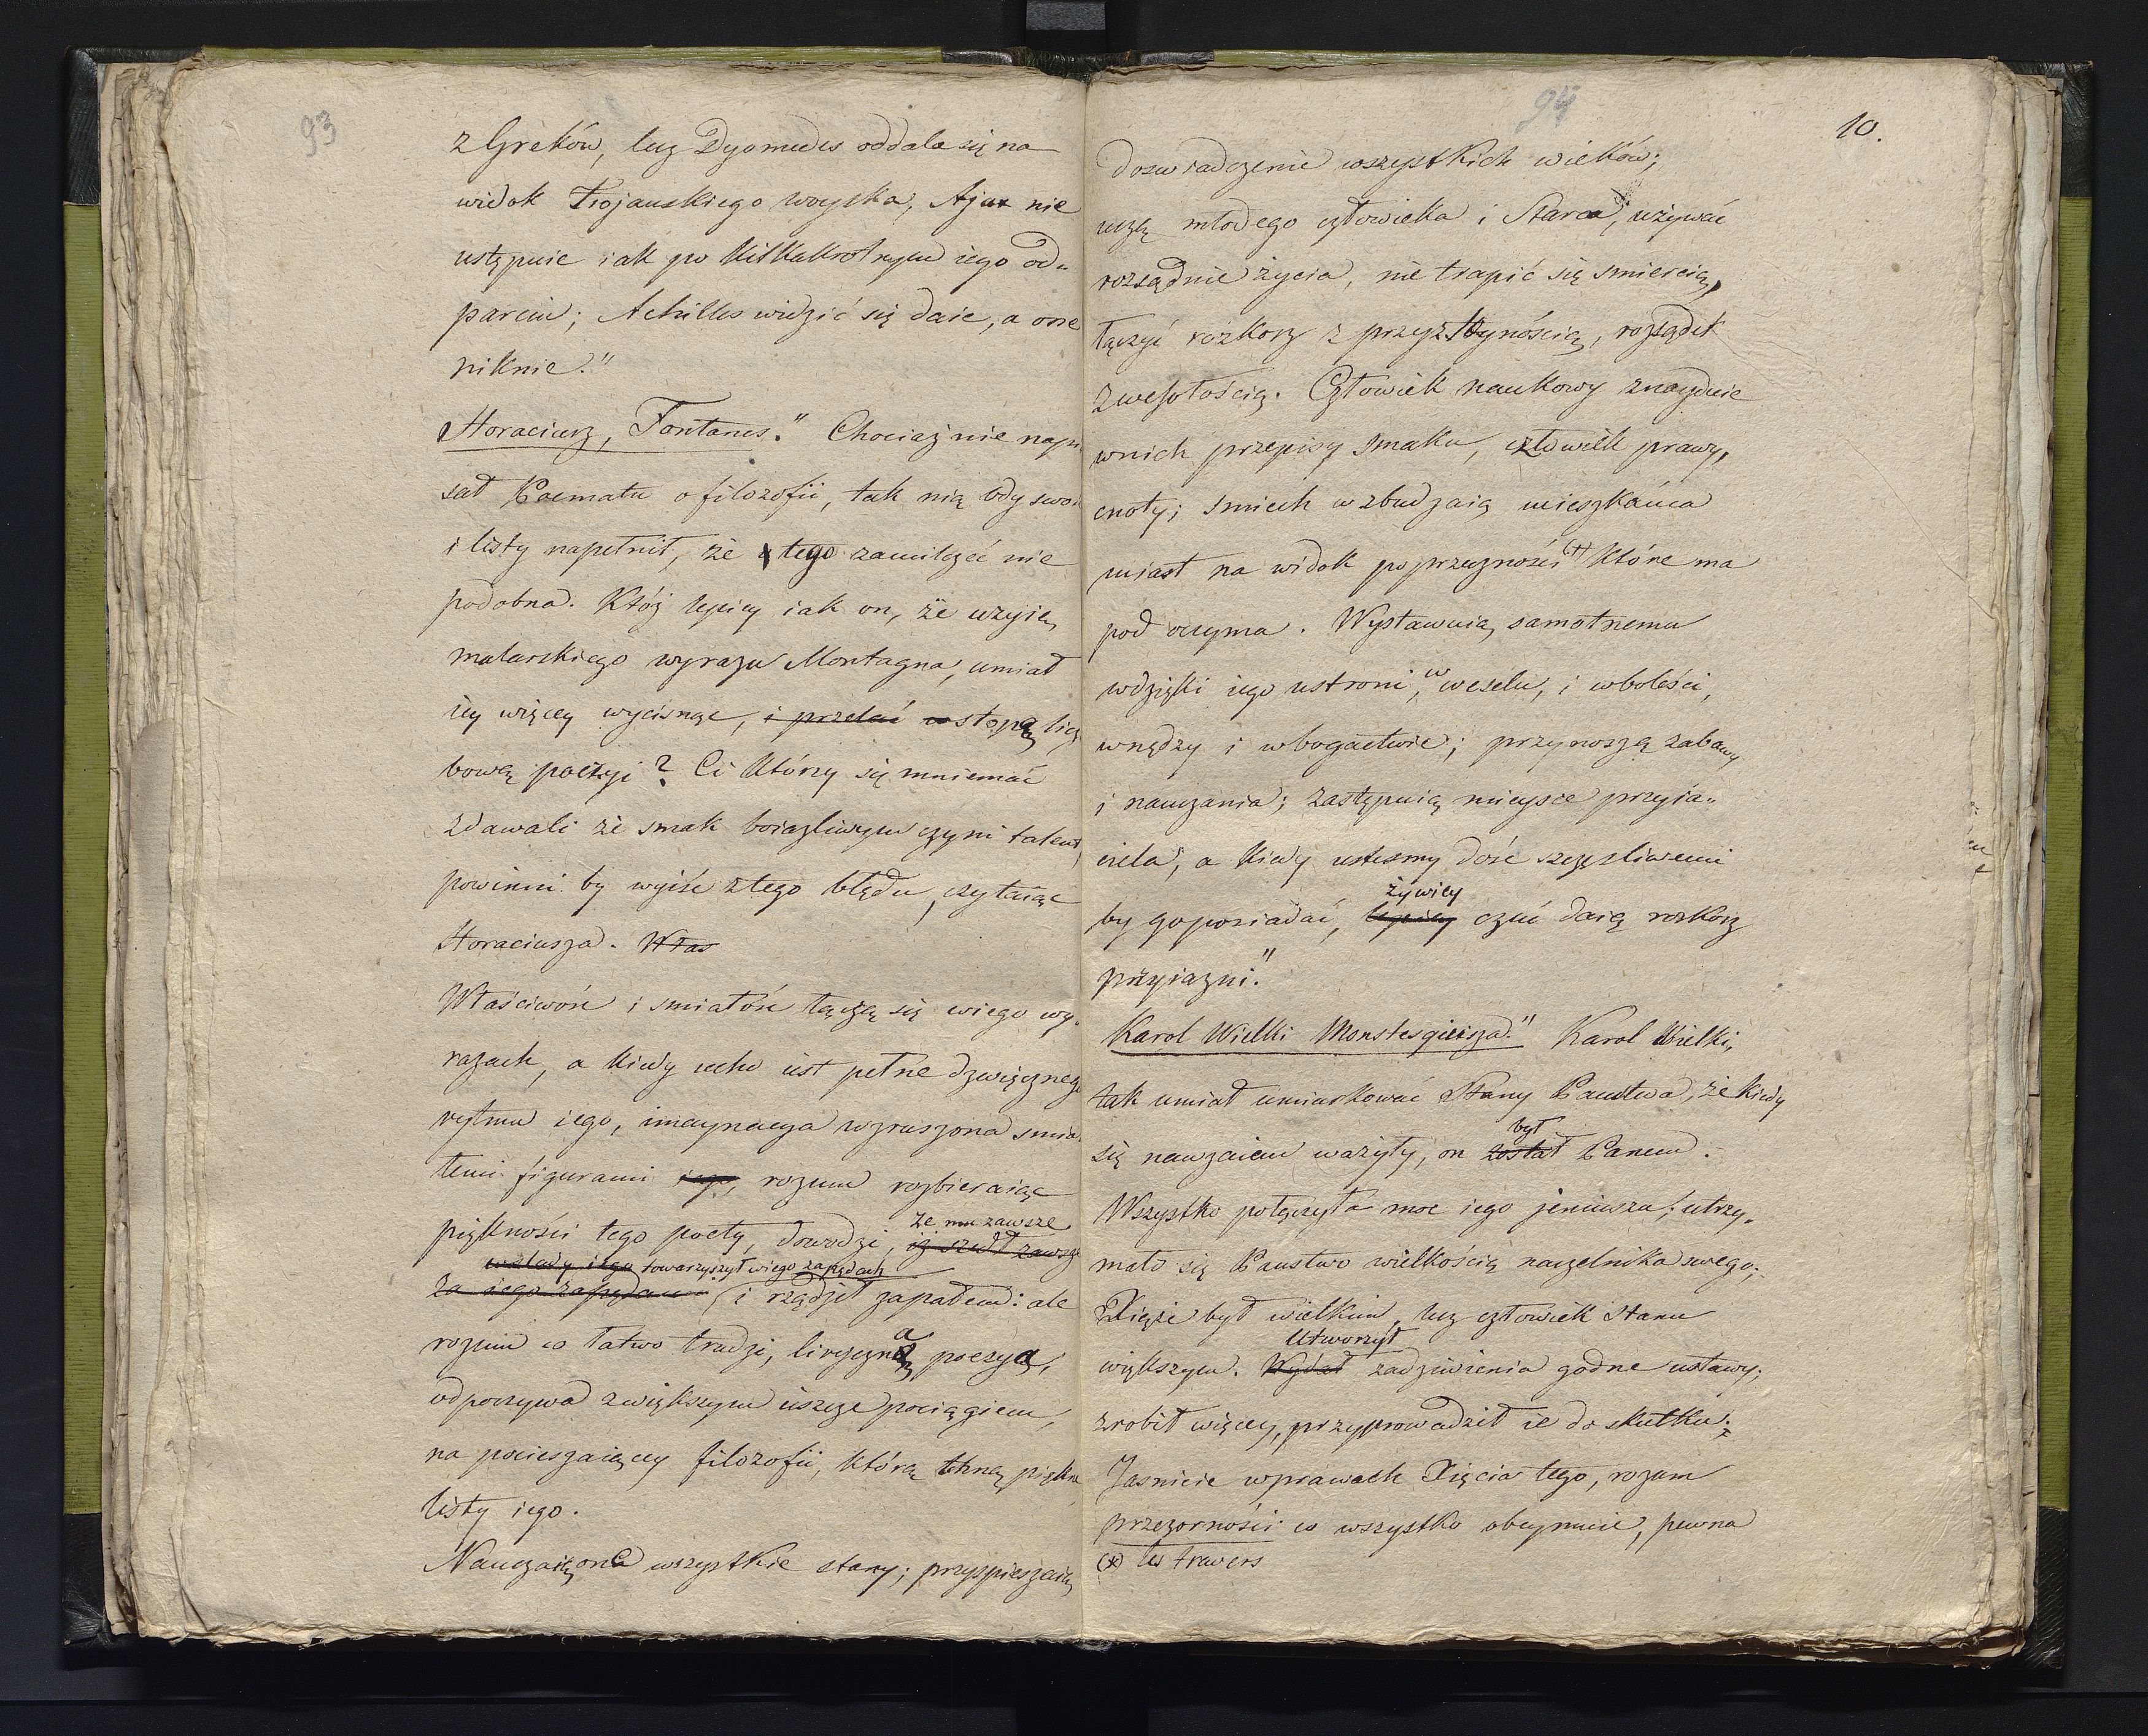 93
z Greków, lecz Dyomedes oddala się na
widok Trojańskiego woyska, Ajax nie
ustępuie iak po kilkakrotnym iego od„
parciu; Achilles widzieć się daie, a one
niknie."
Horaciusz, Fontanes." Chociaż nie napi
sał Poematu o filozofii, tak nią ody swoie
i listy napełnił, że tego zamilczeć nie
podobna. Któż lepiey iak on, że użyię
malarskiego wyrazu Montagna, umiał
iey więcey wycisnąć, i przelać w stopę licz
bową poezyi? Ci którzy się mniemać
zdawali że smak boiazliwym czyni talent,
powinni by wyiść z tego błędu, czytaiąc
Horaciusza. Włas
Właściwość i smiałość łączą się w iego wy„
razach, a kiedy ucho iest pełne dzwięcznego
rytmu iego, imaynacya wzruszona smia
łemi figurami iego, rozum rozbieraiąc
piękności tego poety, dowodzi, iż szedł zawsze
że mu zawsze
towarzyszył w iego zapędach
za iego zapędami i rządził zapałem: ale
rozum co łatwo trudzi, liryczna poezya,
odpoczywa z większym ieszcze pociągiem,
na pocieszaiącey filozofii, którą tchną piękne
listy iego.
Nauczaią one wszystkie stany; przyspieszaią
94
10.
doswiadczenie wszystkich wieków;
uczą młodego człowieka i Starca, używać
rozsądnie życia, nie trapić się smiercią,
łączyć rozkosz z przyzwoynością, rozsądek
z wesołością. Człowiek naukowy znayduie
w nich przepisy smaku, człowiek prawy,
cnoty; smiech wzbudzaią mieszkańca
miast na widok poprzeczności (+) które ma
pod oczyma. Wystawuią samotnemu
wdzięki iego ustroni, w weselu, i w boleści,
w nędzy i w bogactwie; przynoszą zabawy
i nauczania; zastępuią mieysce przyia„
ciela, a kiedy iestesmy dość szczęsliwemi
żywiey
by go posiadać, lepiey czuć daią rozkosz
przyiazni."
Karol Wielki Monstesqieisza." Karol Wielki,
tak umiał umiarkować Stany Państwa, że kiedy
był
się nawzaiem ważyły, on został Panem.
Wszystko połączyła moc iego jeniuszu; utrzy„
mało się Państwo wielkością naczelnika swego;
Xiąże był wielkim, lecz człowiek stanu
Utworzył
większym. Wydał zadziwienia godne ustawy;
zrobił więcey, przyprowadził ie do skutku;
Jasnieie w prawach Xięcia tego, rozum
przezorności co wszystko obeymuie, pewna
(x) les travers